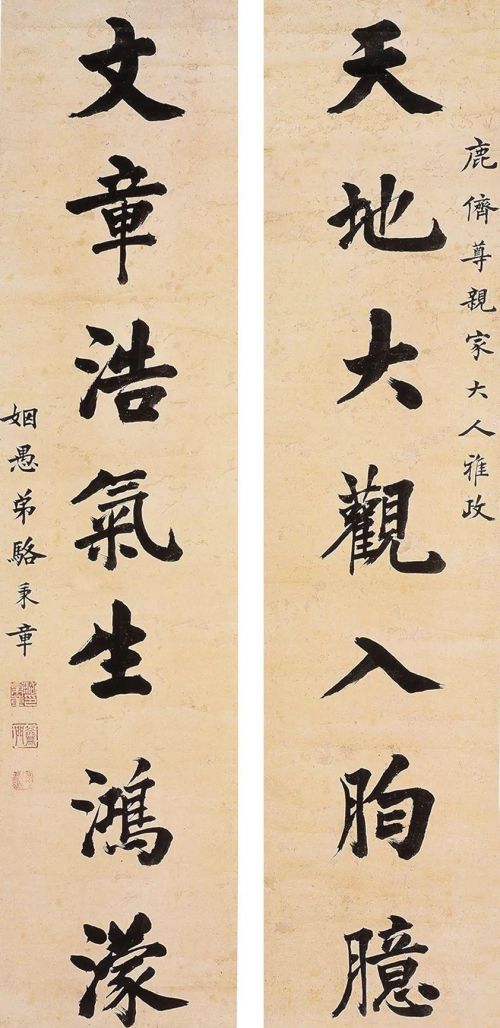 鹿儕尊親家大人雅政
天地大觀入胷臆
文章浩氣生鴻濛
姻愚弟駱秉章